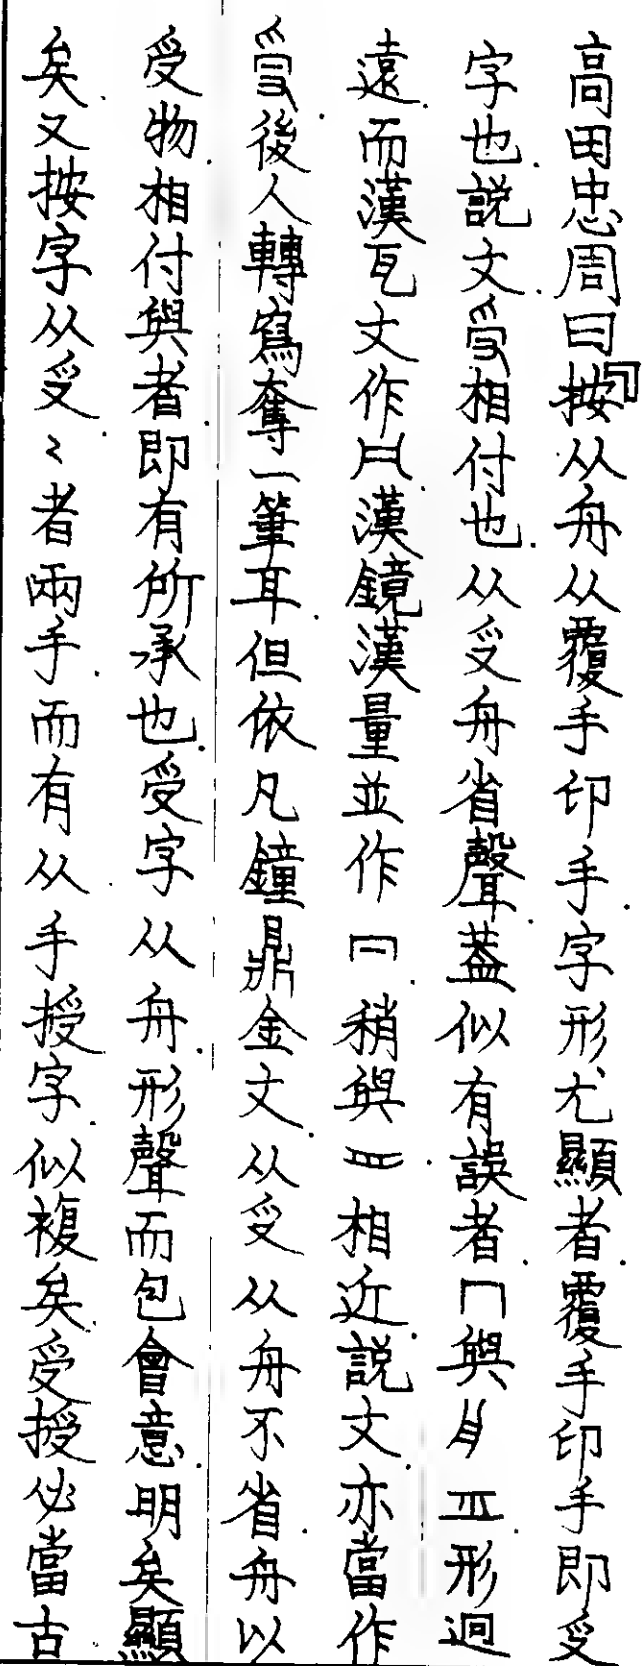 高田忠周曰「按从舟从覆手印手字形尤顯者覆手印手即𠬪
字也說文受相付也从𠬪舟省聲葢似有誤者冂與舟形迥
遠而漢瓦文作漢鏡漢量並作稍與相近說文亦當作
後人轉寫奪一筆耳但依凡鐘鼎金文从𠬪从舟不省舟以
受物相付與者即有所承也受字从舟形聲而包會意明矣顯
矣又按字从𠬪〻者兩手而有从手授字似複矣受授必當古